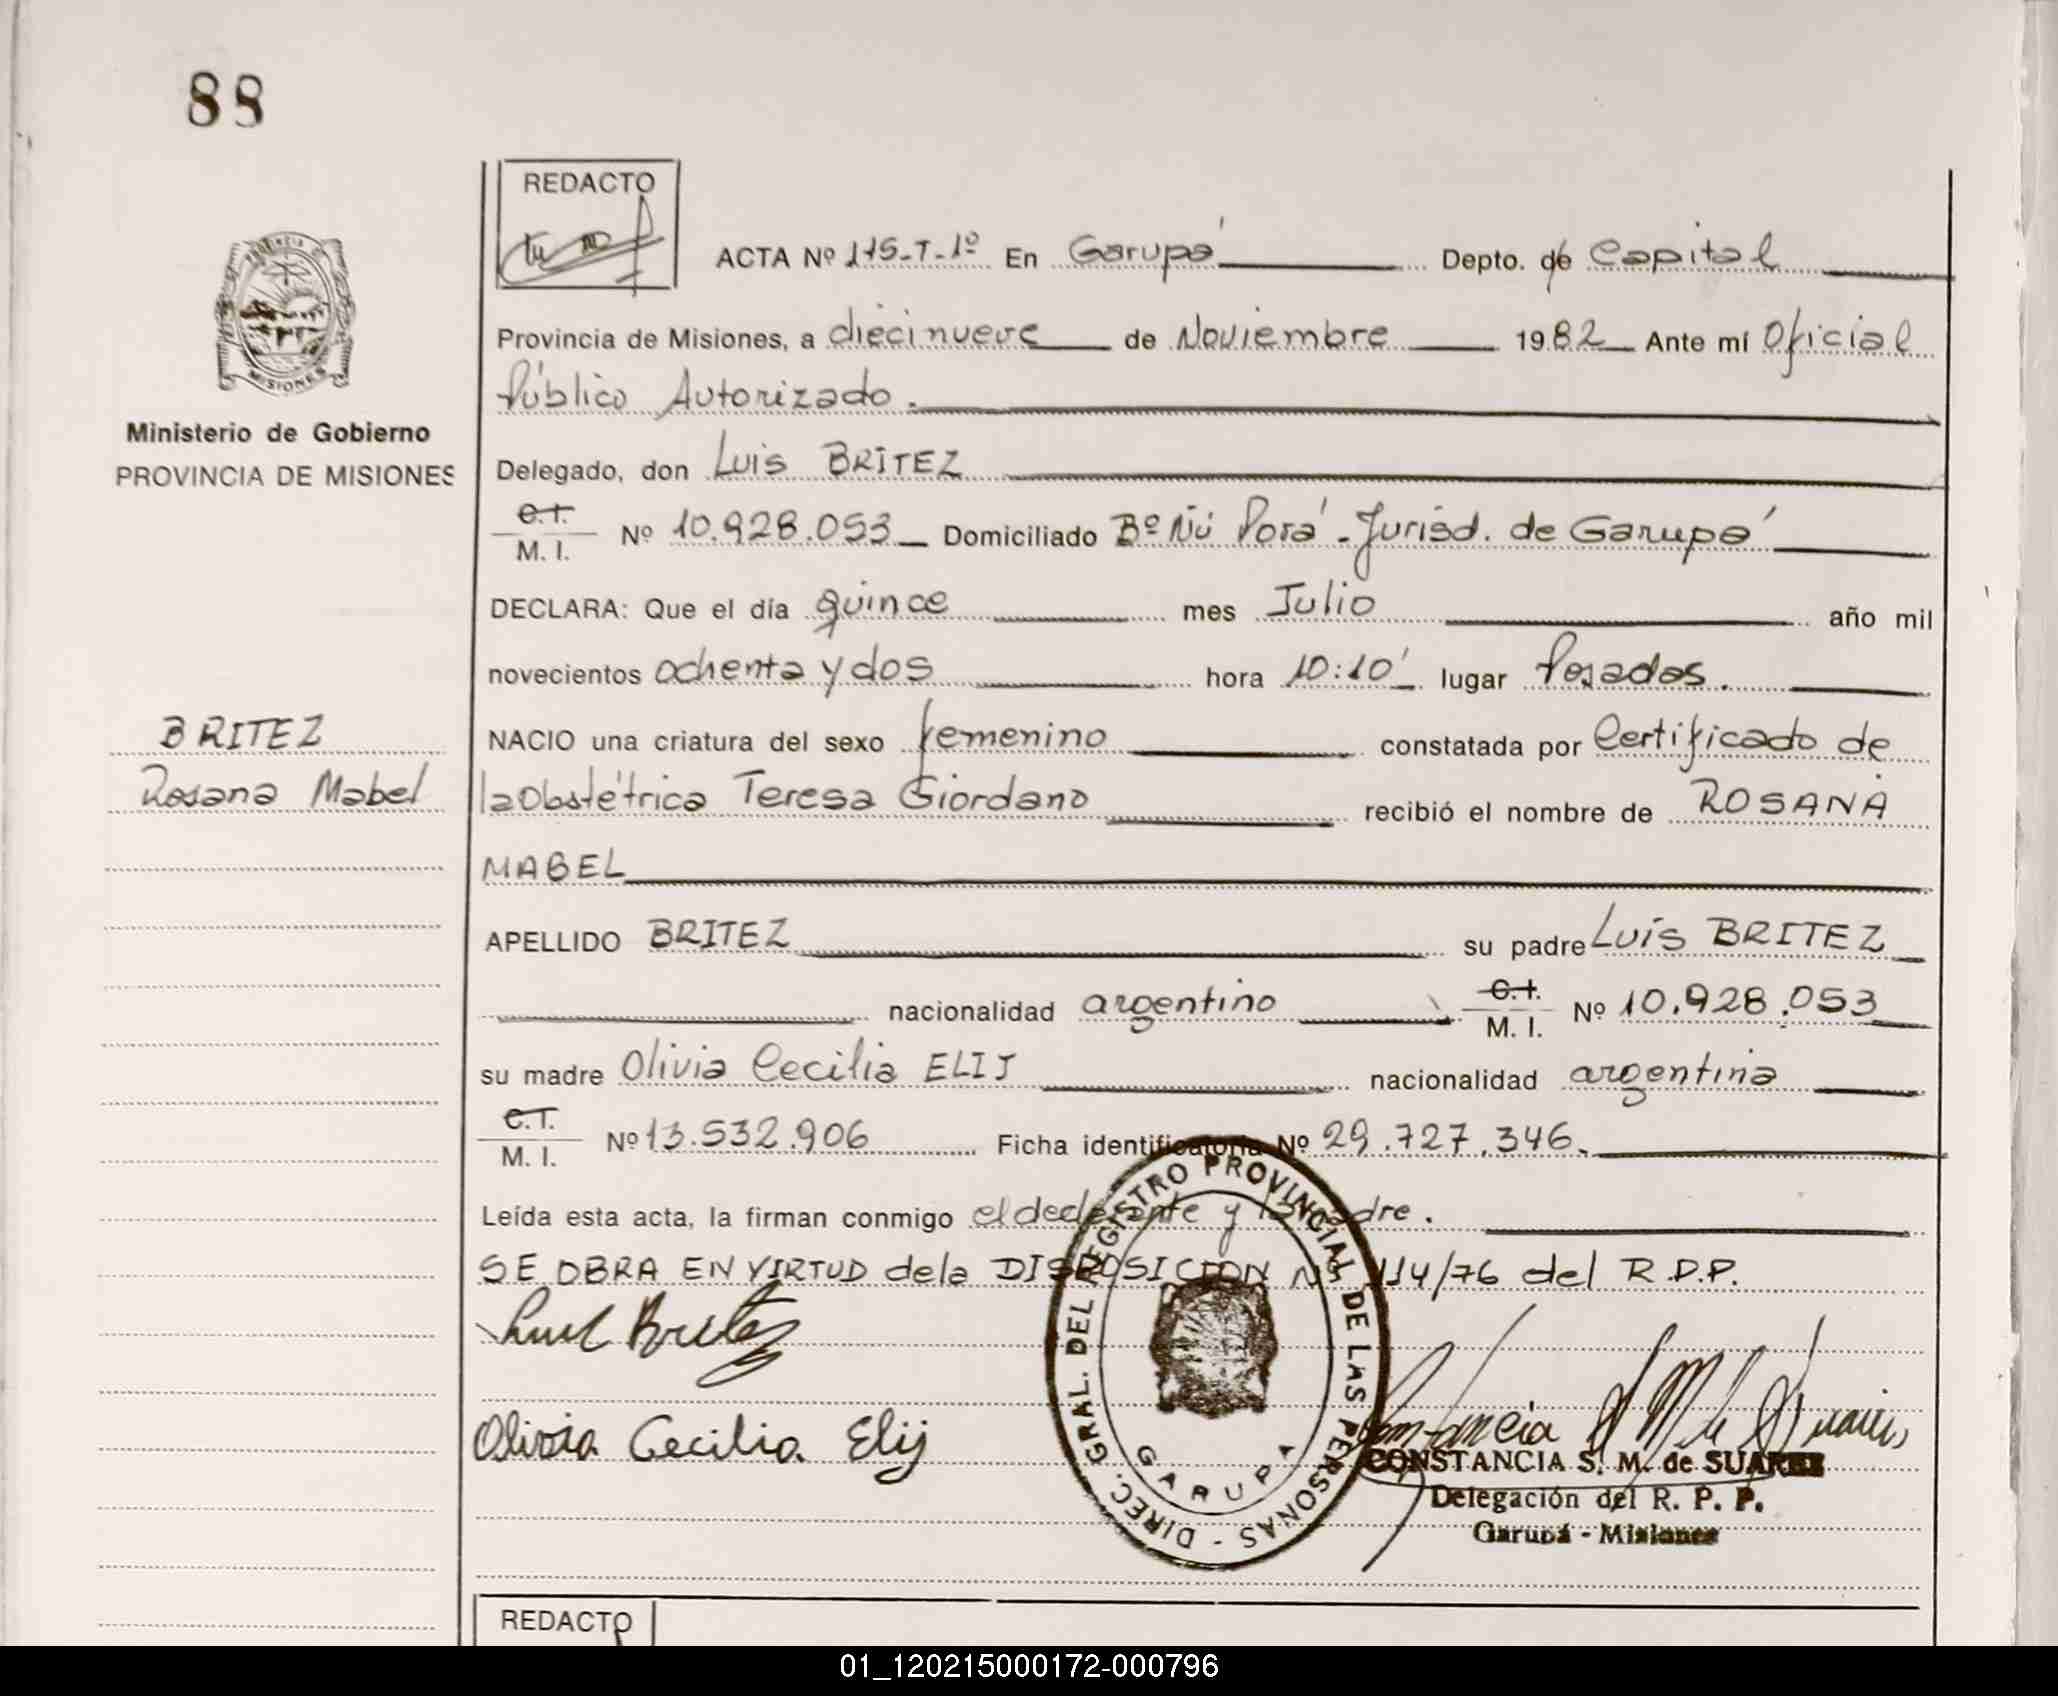 88
REDACTO
ACTA Nº 175-T-1º En Garupá Depto. de Capital
Provincia de Misiones, a diecinueve de Noviembre 1982 Ante mí Oficial
Público Autorizado.
Ministerio de Gobierno
PROVINCIA DE MISIONES
Delegado, don Luis BRITEZ
C.I.
M. I. Nº 10.928.053 Domiciliado Bº Ñú Porá - Jurisd. de Garupá
DECLARA: Que el día quince mes Julio año mil
novecientos ochenta y dos hora 10:10' lugar Posadas.
BRITEZ
Rosana Mabel
NACIO una criatura del sexo femenino constatada por Certificado de
la Obstétrica Teresa Giordano recibió el nombre de ROSANA
MABEL
APELLIDO BRITEZ su padre Luis BRITEZ
nacionalidad argentino C.I. M. I. Nº 10.928.053
su madre Olivia Cecilia ELIJ nacionalidad argentina
C.I.
M. I. Nº 13.532.906 Ficha identificatoria Nº 29.727.346.
Leída esta acta, la firman conmigo el declarante y la madre.
SE OBRA EN VIRTUD de la DISPOSICION Nº 114/76 del R.D.P.
Luis Britez
Olivia Cecilia Elij
DIREC. GRAL. DEL REGISTRO PROVINCIAL DE LAS PERSONAS -
GARUPA
Constancia S. M. de Suarez
CONSTANCIA S. M. de SUAREZ
Delegación del R. P. P.
Garupá - Misiones
REDACTO
01_120215000172-000796